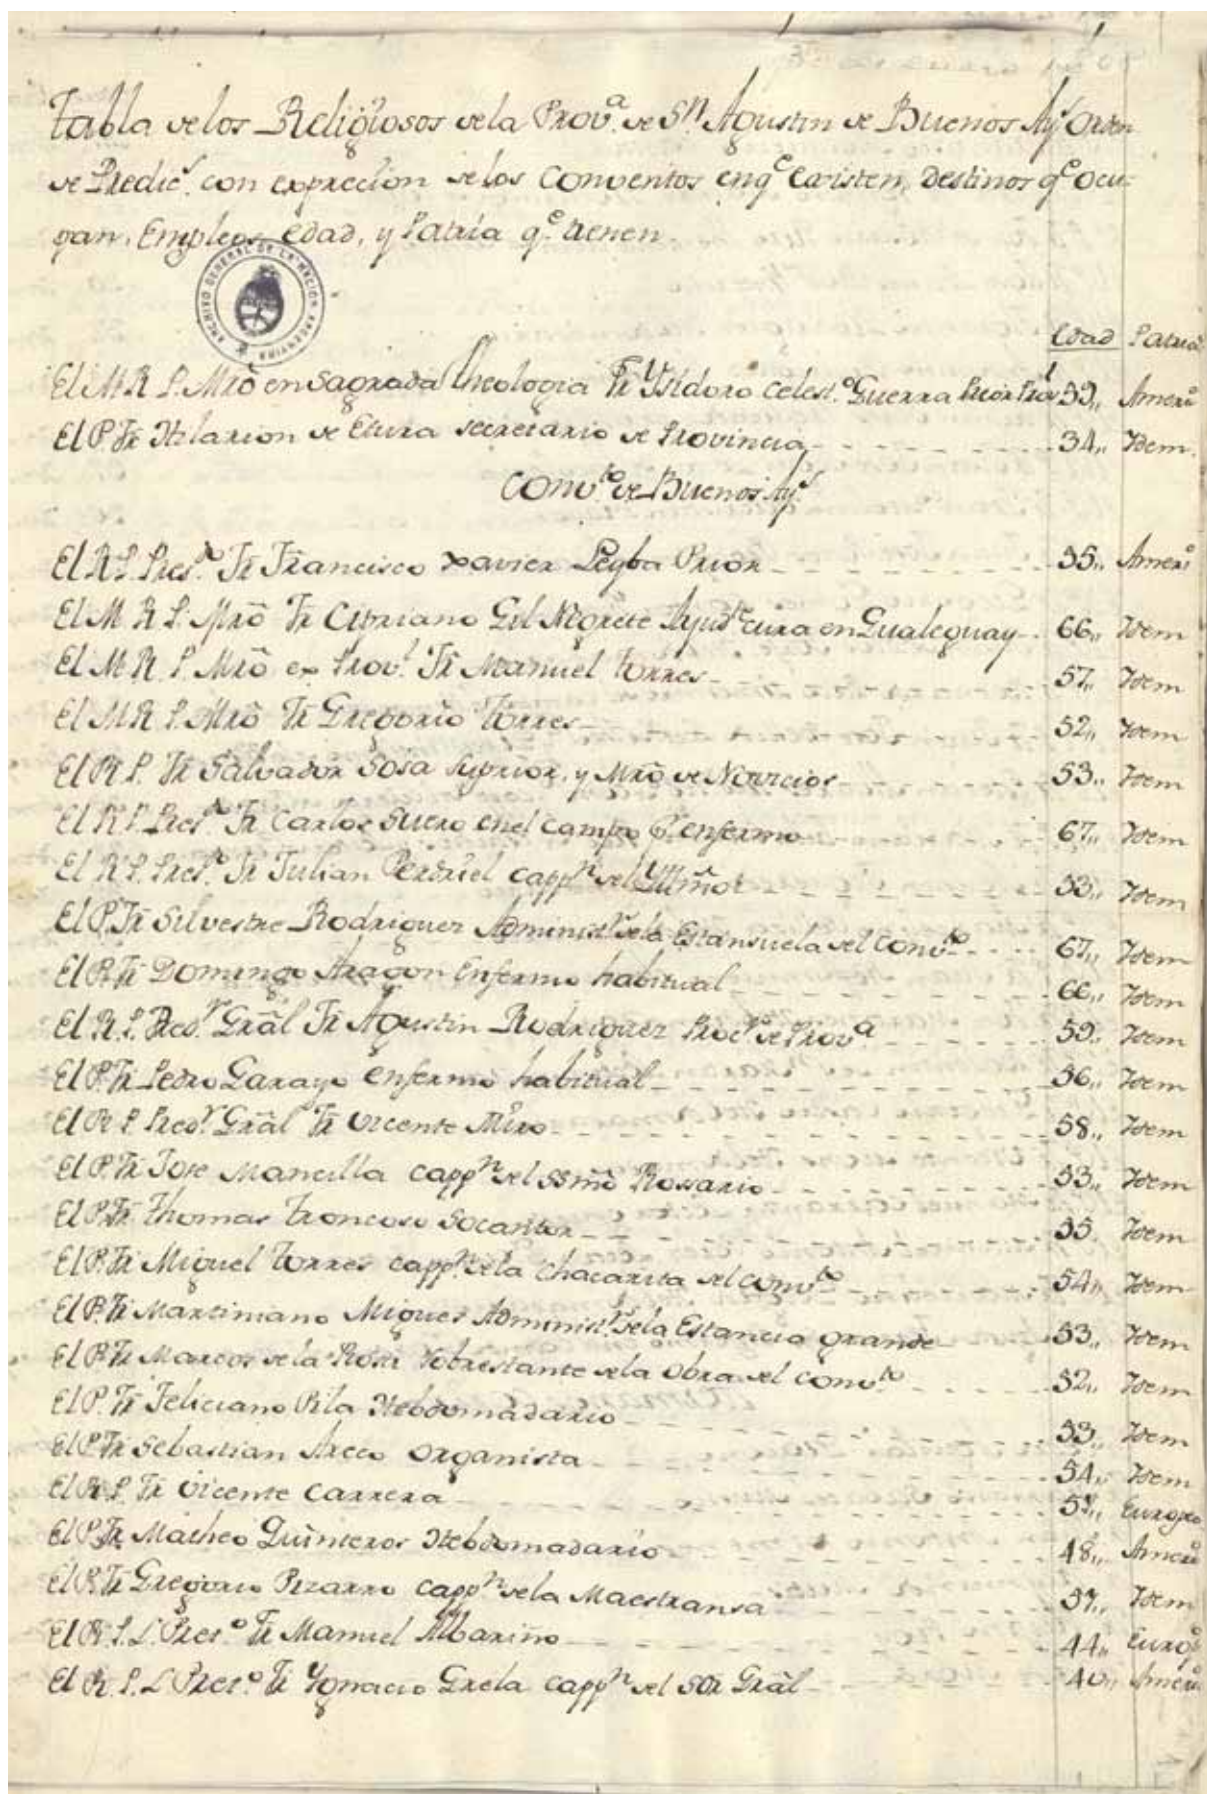 Tabla de los Religiosos de la Prov.a de Sn. Agustin de Buenos Ays. Orden
de Predic.s con exprecion de los Conventos en q.e existen, Destinos q.e ocu-
pan, Empleos, edad, y Patria q.e tienen.
ARCHIVO GENERAL DE LA NACION ARGENTINA
Edad Patria
El M. R. P. Mrõ en Sagrada Theologia Fr. Ysidoro Celest.o Guerra Prior Prov.l 39,, Amer.o
El P. Fr. Hilarion de Etura secretario de Provincia 34,, Idem.
Conv.to de Buenos Ay.s
El R. P. Pres.do Fr. Francisco Xavier Leyba Prior 55,, Amer.o
El M. R. P. Mrõ Fr. Cipriano Gil Negrete Ayud.te cura en Gualeguay 66,, Idem
El M. R. P. Mrõ ex Prov.l Fr. Manuel Torres 57,, Idem
El M. R. P. Mrõ Fr. Gregorio Torres 52,, Idem
El R. P. Fr. Salvador Sosa Suprior, y Mrõ de Novicios 53,, Idem
El R. P. Pres.do Fr. Carlos Suero en el campo p.r enfermo 67,, Idem
El R. P. Pres.do Fr. Julian Perdriel capp.n del 53,, Idem
El P. Fr. Silvestre Rodriguez Administ.r de la Estansuela del Conv.to 67,, Idem
El P. Fr. Domingo Aragon Enfermo habitual 66,, Idem
El R. P. Pred.r Grãl Fr. Agustin Rodriguez Proc.r de Prov.a 59,, Idem
El P. Fr. Pedro Garayo Enfermo habitual 36,, Idem
El R. P. Pred.r Grãl Fr. Vicente Miro 58,, Idem
El P. Fr. Jose Mancilla capp.n del ssmõ Rossario 53,, Idem
El P. Fr. Thomas Troncoso Socantor 35,, Idem
El P. Fr. Miguel Torres capp.n de la Chacarita del Conv.to 54,, Idem
El P. Fr. Martiniano Migues Administ.r de la Estancia grande 53,, Idem
El P. Fr. Marcos de la Rosa sobrestante de la obra del Conv.to 52,, Idem
El P. Fr. Feliciano Pila Hebdomadario 53,, Idem
El P. Fr. Sebastian Areco Organista 54,, Idem
El R. P. Fr. Vicente Carrera Europeo
El P. Fr. Matheo Quinteros Hebdomadario 48,, Amer.o
El P. Fr. Gregorio Pizarro capp.n de la Maestransa 37,, Idem
El R. P. L. Pres.do Fr. Manuel Albariño 44,, Europ.o
El R. P. L. Pres.do Fr. Ygnacio Grela capp.n del Sõr Grãl 40,, Amer.o